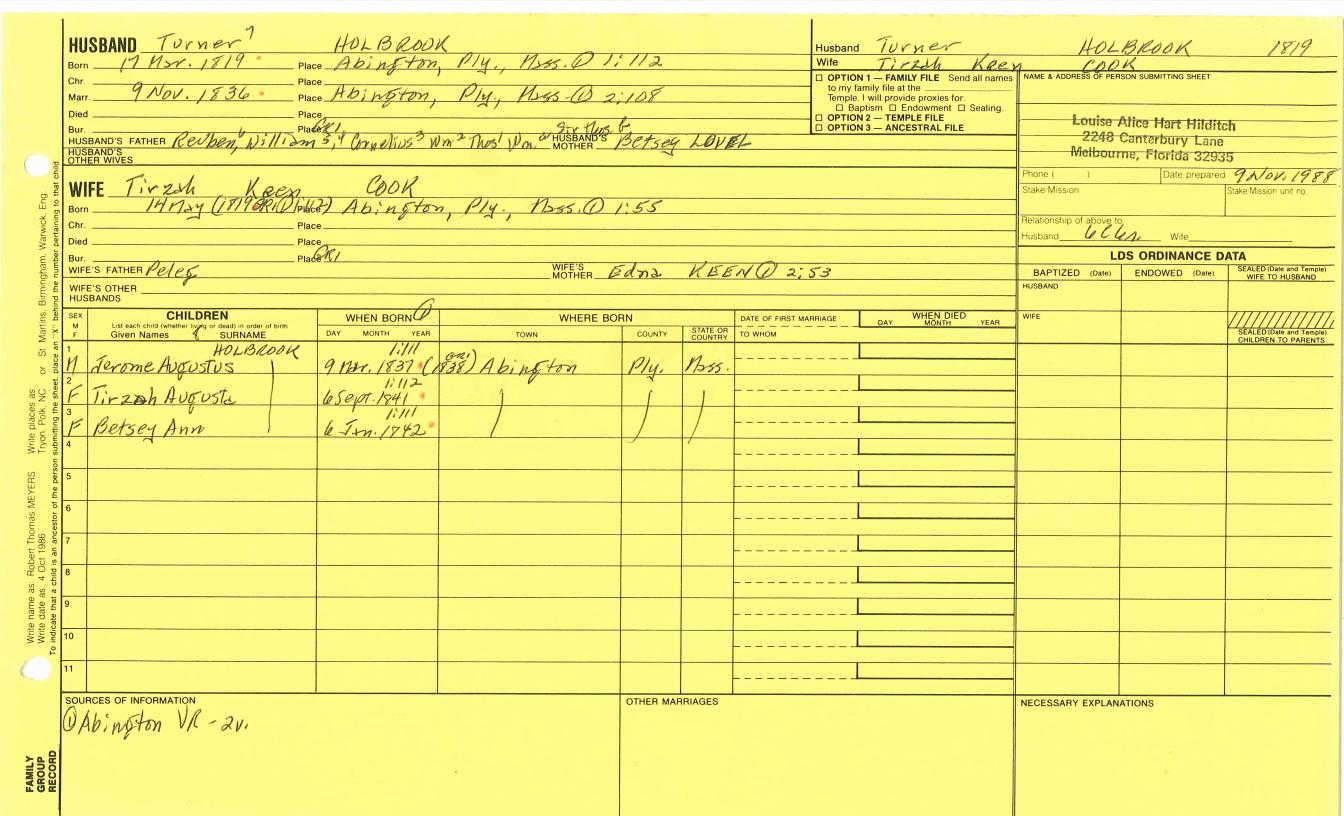 HUSBAND Turner 7 HOLBROOK
Born 17 Mar. 1819 Place Abington, Ply., Mass. ① 1:112
Chr. Place
Marr. 9 Nov. 1836 Place Abington, Ply, Mass ① 2:108
Died Place
Bur. Place GR1
HUSBAND'S FATHER Reuben, 6 William 5, 4 Cornelius 3 Wm 2 Thos 1 Wm. HUSBAND'S MOTHER Betsey LOVEL
HUSBAND'S OTHER WIVES
WIFE Tirzah Keen COOK
Born 14 May (1819 GR1 ① ) Place Abington, Ply., Mass. ① 1:55
Chr. Place
Died Place
Bur. Place GR1
WIFE'S FATHER Peleg WIFE'S MOTHER Edna KEEN ① 2:53
WIFE'S OTHER HUSBANDS
Husband Turner HOLBROOK 1819
Wife Tirzah Keen COOK
☐ OPTION 1 — FAMILY FILE Send all names
to my family file at the
Temple. I will provide proxies for
☐ Baptism ☐ Endowment ☐ Sealing.
☐ OPTION 2 — TEMPLE FILE
☐ OPTION 3 — ANCESTRAL FILE
NAME & ADDRESS OF PERSON SUBMITTING SHEET
Louise Alice Hart Hilditch
2248 Canterbury Lane
Melbourne, Florida 32935
Phone ( ) Date prepared 9 Nov. 1988
Stake Mission Stake Mission unit no.
Relationship of above to
Husband 6C6r. Wife
LDS ORDINANCE DATA
BAPTIZED (Date) ENDOWED (Date) SEALED (Date and Temple) WIFE TO HUSBAND
HUSBAND
WIFE
SEALED (Date and Temple) CHILDREN TO PARENTS
SEX M F
CHILDREN
List each child (whether living or dead) in order of birth
Given Names 8 SURNAME
WHEN BORN ①
DAY MONTH YEAR
WHERE BORN
TOWN COUNTY STATE OR COUNTRY
DATE OF FIRST MARRIAGE
TO WHOM
WHEN DIED
DAY MONTH YEAR
1 HOLBROOK 1:111
M Jerome Augustus 9 Mar. 1837 (GR1 1838) Abington Ply. Mass.
2 1:112
F Tirzah Augusta 6 Sept. 1841
3 1:111
F Betsey Ann 6 Jan. 1842
4
5
6
7
8
9
10
11
SOURCES OF INFORMATION
① Abington VR - 2v.
OTHER MARRIAGES
NECESSARY EXPLANATIONS
Write name as: Robert Thomas MEYERS Write places as: Tryon, Polk, NC or St. Martins, Birmingham, Warwick, Eng
Write date as: 4 Oct 1986
To indicate that a child is an ancestor of the person submitting the sheet, place an "X" behind the number pertaining to that child.
FAMILY
GROUP
RECORD